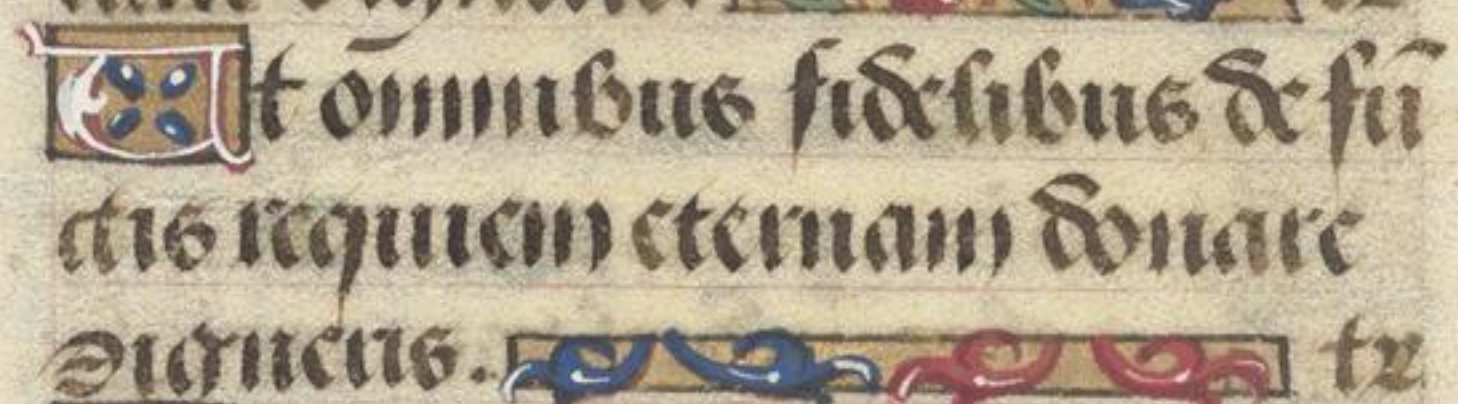 Ut om̄nibus fidelibus de fū
ctis requiem eternam donare
digneris. te r